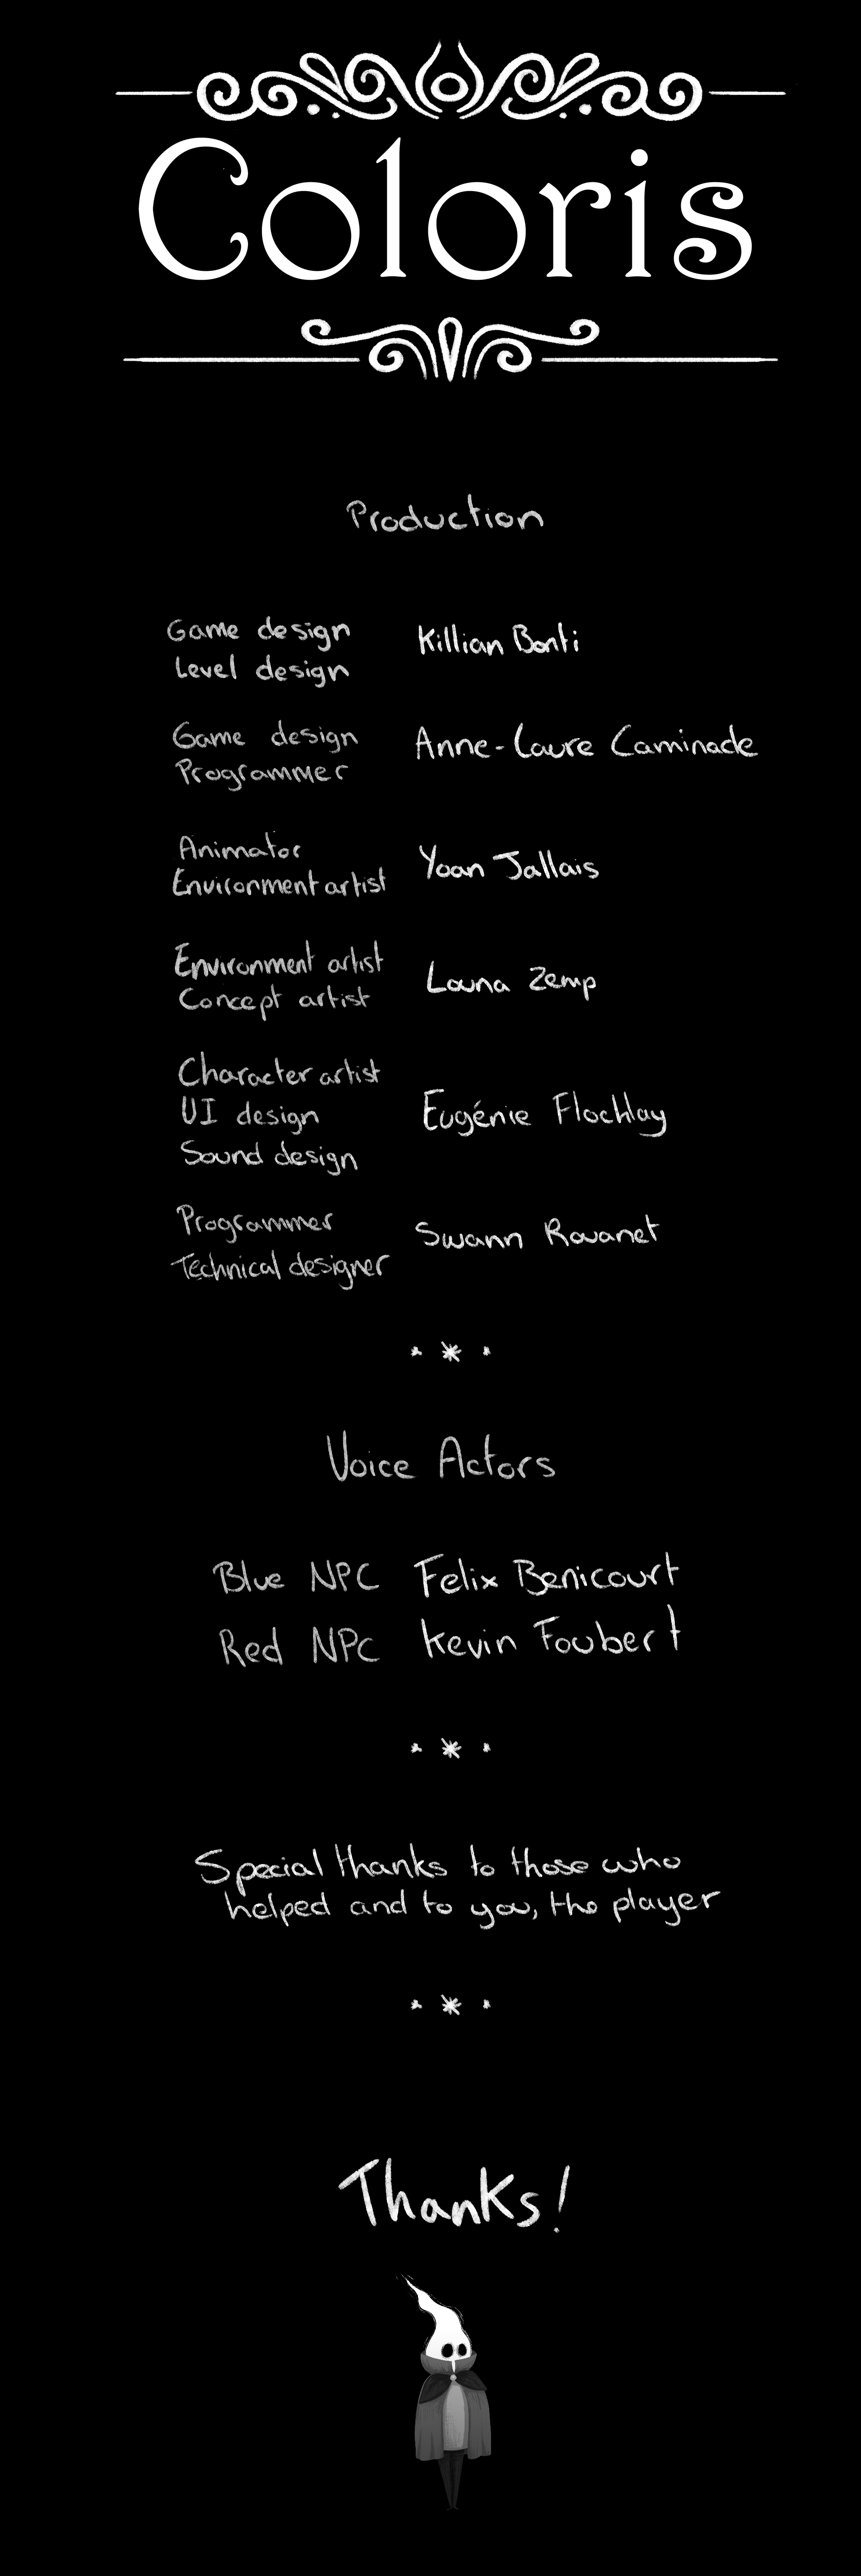 Coloris
Production
Game design
Level design
Killian Bonti
Game design
Programmer
Anne-Laure Caminade
Animator
Environment artist
Yoan Jallais
Environment artist
Concept artist
Louna Zemp
Character artist
UI design
Sound design
Eugénie Flochlay
Programmer
Technical designer
Swann Rouanet
Voice Actors
Blue NPC Felix Benicourt
Red NPC Kevin Foubert
Special thanks to those who
helped and to you, the player
Thanks!